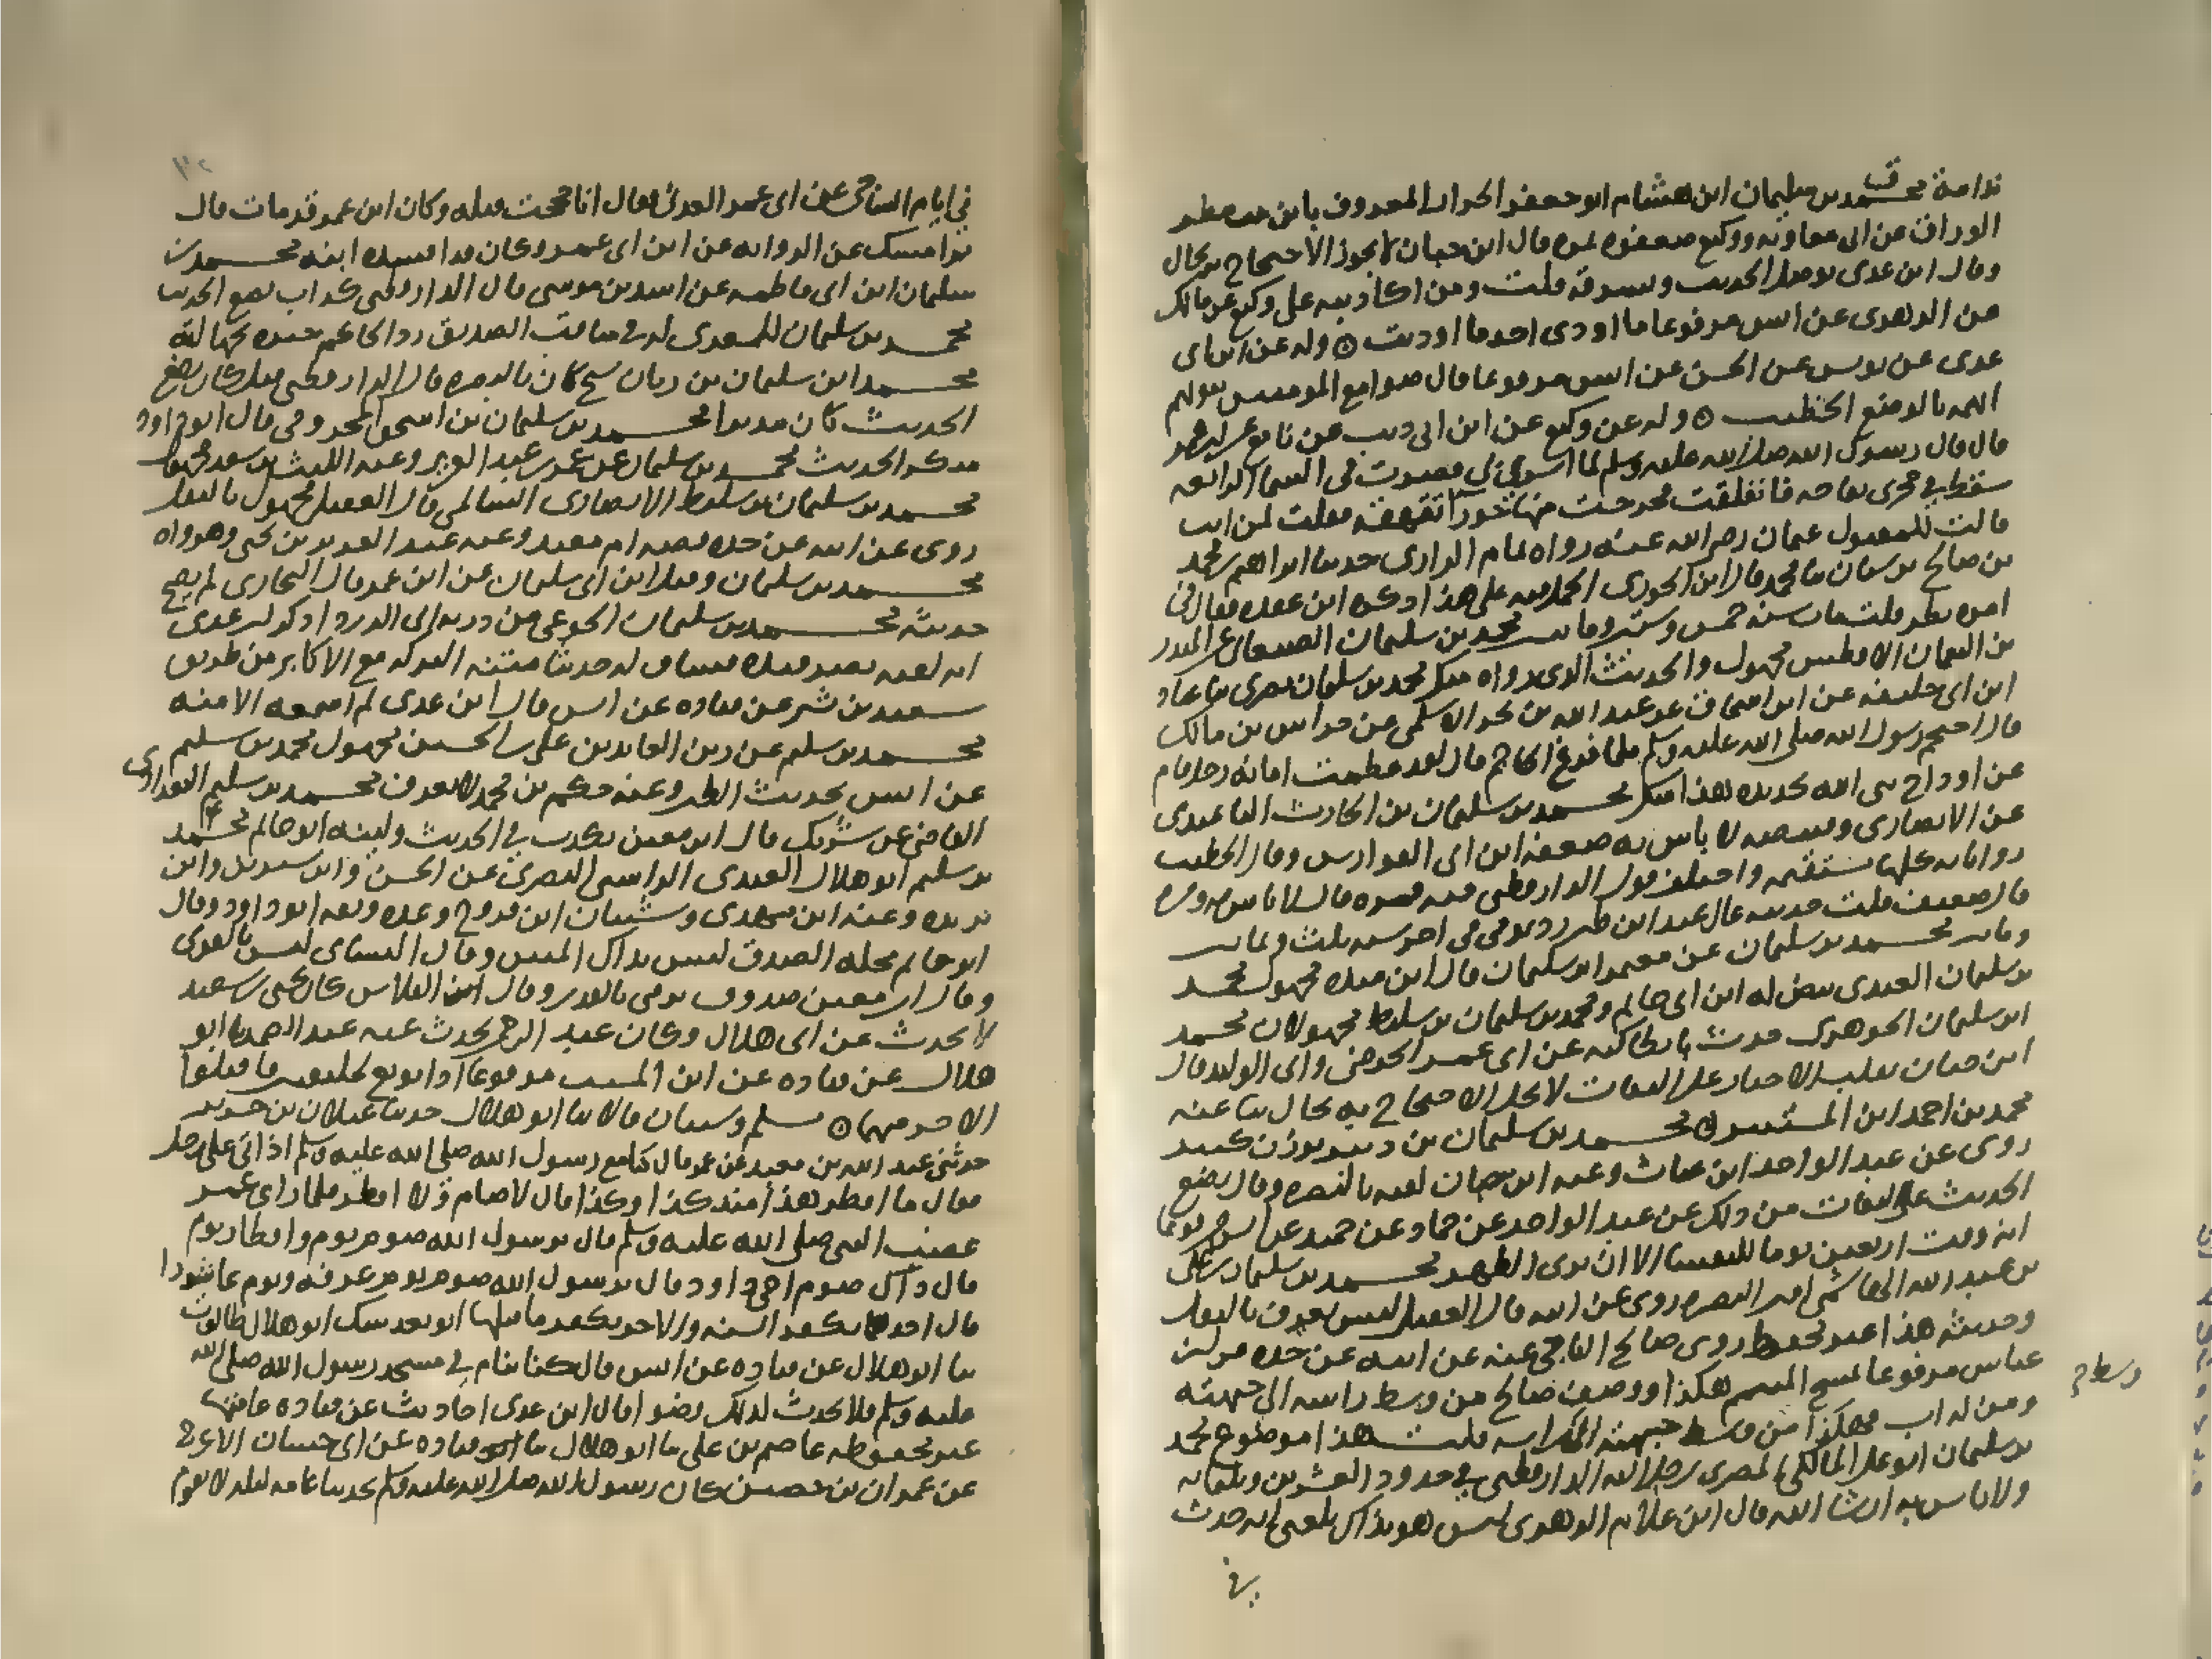 ندامة محمد بن سليمان ابن هشام ابو جعفر الحرار المعروف بابن بنت مطر
الوراق عن ابي معاويه ووكيع ضعفوه بمره قال ابن حبان لا يجوز الاحتجاج به بحال
وقال ابن عدي يوصل الحديث ويسرقه قلت ومن اكاذيبه على وكيع عن مالك
عن الزهري عن انس مرفوعا ما اوذي احد ما اوذيت ۞ وله عن ابن ابي
عدي عن يونس عن الحسن عن انس مرفوعا قال صوامع المومنين بيوتهم
الخطيب ۞ وله عن وكيع عن ابن ابي ذيب عن نافع عن ابن عمر
قال قال رسول الله صلى الله عليه وسلم لما اسري بي فصرت في السما الرابعه
سقط في حجري تفاحه فانفلقت فخرجت منها حورا تقهقه فقلت لمن انت
قالت للمقتول عثمان رضي الله عنه رواه تمام الرازي حدثنا ابراهيم بن محمد
بن صالح بن سنان نا محمد قال ابن الجوزي الحمل فيه على هذا ذكره ابن عقده فقال في
امره نظر قلت مات سنه خمس وستين ومايتين محمد بن سليمان الصنعاني عن المنذر
بن النعمان الافطس مجهول والحديث الذي رواه منكر محمد بن سليمان بصري نا عباد
ابن ابي خليفه عن ابن اسحاق عن عبد الله بن بحر الاسلمي عن خراش بن مالك
قال احتجم رسول الله صلى الله عليه وسلم فلما فرغ الحاجم قال لقد عظمت امانه رجل قام
عن اوداج نبي الله بحديده هذا منكر محمد بن سليمان بن الحارث الباغندي
عن الانصاري وقبيصه لا باس به ضعفه ابن ابي الفوارس وقال الخطيب
رواياته كلها مستقيمه واختلف قول الدارقطني فيه فمره قال لا باس به ومره
قال ضعيف قلت حديثه عال عند ابن طبرزد توفي في اخر سنه ثلث وثمانين
ومايتين محمد بن سليمان عن معتمر ابن سليمان قال ابن منده مجهول محمد
بن سليمان العبدي بيض له ابن ابي حاتم ومحمد بن سليمان بن سليط مجهولان محمد
ابن سليمان الجوهري حدث بانطاكيه عن ابي عمر الحوضي وابي الوليد قال
ابن حبان يقلب الاخبار على الثقات لا يحل الاحتجاج به بحال ثنا عنه
محمد بن احمد ابن المستنير ۞ محمد بن سليمان بن دبير بوزن كبير
روى عن عبد الواحد ابن غياث وعنه ابن حبان لقيه بالبصره وقال يضع
الحديث على الثقات من ذلك عن عبد الواحد عن حماد عن حميد عن انس مرفوعا
انه وقت اربعين يوما للنفسا الا ان ترى الطهر محمد بن سليمان بن علي
بن عبد الله الهاشمي امير البصره روى عن ابيه قال العقيلي ليس يعرف بالنقل
وحديثه هذا غير محفوظ روى صالح الناجي عنه عن ابيه عن جده عن ابن
عباس مرفوعا امسح اليتيم هكذا ووصف صالح من وسط راسه الى جبهته
ومن له اب فهكذا من وسط جبهته الى راسه قلت هذا موضوع محمد
بن سليمان ابو علي المالكي البصري رحل اليه الدارقطني في حدود العشرين وثلثمايه
ولا باس به ان شا الله قال ابن غلام الزهري ليس هو بذاك بلغني انه حدث
وسط م
في ايام الساجي عن ابي عمر العدني فقال انا حججت قبله وكان ابن عمر قد مات قال
ثم امسك عن الروايه عن ابن ابي عمر وكان قد افسده ابنه محمد بن
سليمان ابن ابي فاطمه عن اسد بن موسى قال الدارقطني كذاب يضع الحديث
محمد بن سليمان السعدي له في مناقب الصديق رد الحاكم خبره بجهالته
محمد ابن سليمان بن زبان شيخ كان بالبصره قال الدارقطني قيل كان يضع
الحديث كان مدبرا محمد بن سليمان بن اسحق المخزومي قال ابو داود
منكر الحديث محمد بن سليمان عن عمر بن عبد العزيز وعنه الليث بن سعد مجهول
محمد بن سليمان بن سليط الانصاري السالمي قال العقيلي مجهول بالنقل
روى عن ابيه عن جده قصه ام معبد وعنه عبد العزيز بن يحيى وهو واه
محمد بن سليمان وقيل ابن ابي سليمان عن ابن عمر قال البخاري لم يصح
حديثه محمد بن سليمان الجوعي من ذريه ابي الدردا ذكر ابن عدي
انه لقيه بصيدا فساق له حديثا متنه البركه مع الاكابر من طريق
سعيد بن بشر عن قتاده عن انس قال ابن عدي لم اسمعه الا منه
محمد بن سليم عن زين العابدين علي بن الحسين مجهول محمد بن سليم
عن انس بحديث الطير وعنه حكم بن محمد لا يعرف محمد بن سليم البغدادي
القاضي عن شريك قال ابن معين يكذب في الحديث ولينه ابو حاتم محمد
بن سليم ابو هلال العبدي الراسبي البصري عن الحسن وابن سيرين وابن
بريده وعنه ابن مهدي وشيبان ابن فروخ وعده وثقه ابو داود وقال
ابو حاتم محله الصدق ليس بذاك المتين وقال النسائي ليس بالقوي
وقال ابن معين صدوق يرمى بالقدر وقال الفلاس كان يحيى بن سعيد
لا يحدث عن ابي هلال وكان عبد الرحمن يحدث عنه عبد الصمد نا ابو
هلال عن قتاده عن ابن المسيب مرفوعا اذا بويع لخليفتين فاقتلوا
الاخر منهما ۞ مسلم وشيبان قالا نا ابو هلال حدثنا غيلان بن جرير
حدثني عبد الله بن معبد عن عمر قال كنا مع رسول الله صلى الله عليه وسلم اذ اتى على رجل
فقال ما افطر هذا منذ كذا وكذا قال لا صام ولا افطر فلما راى عمر
غضب النبي صلى الله عليه وسلم قال يرسول الله صوم يوم وافطار يوم
قال ذاك صوم اخي داود قال يرسول الله صوم يوم عرفه ويوم عاشورا
قال احدهما يكفر السنه والاخر يكفر ما قبلها او بعد شك ابو هلال طالوت
نا ابو هلال عن قتاده عن انس قال كنا ننام في مسجد رسول الله صلى الله
عليه وسلم فلا نحدث لذلك وضوا قال ابن عدي احاديث عن قتاده عامتها
غير محفوظه عاصم بن علي نا ابو هلال نا قتاده عن ابي حسان الاعرج
عن عمران بن حصين كان رسول الله صلى الله عليه وسلم يحدثنا عامه ليله لا يقوم